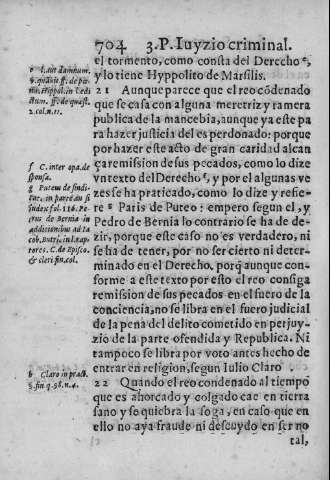 704 3.P. Iuyzio criminal.
el tormento, como consta del Derecho e,
y lo tiene Hyppolito de Marsilis.
21 Aunque parece que el reo cõdenado
que se casa con alguna meretriz y ramera
publica de la mancebia, aunque ya este pa
ra hazer justicia del es perdonado: porque
por hazer este acto de gran caridad alcan
ça remission de sus pecados, como lo dize
vn texto del Derecho f, y por el algunas ve
zes se ha praticado, como lo dize y refie-
re g Paris de Puteo: empero segun el, y
Pedro de Bernia lo contrario se ha de de-
zir, porque este caso no es verdadero, ni
se ha de tener, por no ser cierto ni deter-
minado en el Derecho, porq̃ aunque con-
forme a este texto por esto el reo consiga
remission de sus pecados en el fuero de la
conciencia, no se libra en el fuero judicial
de la pena del delito cometido en perjuy-
zio de la parte ofendida y Republica. Ni
tampoco se libra por voto antes hecho de
entrar en religion, segun Iulio Claro h.
22 Quando el reo condenado al tiempo
que es ahorcado y colgado cae en tierra
sano y se quiebra la soga, en caso que en
ello no aya fraude ni descuydo en ser no
tal,
e l. aut damnum.
§. quæstio. ff. de pœ
nis.
2.col.n.11.
f C. inter opa. de
sponsa.
g Puteus de sindi
cat. in
sindex fol. 116. Pe
trus de Bernia in
additionibus ad Ia
cob. Butri. in l. rap
tores. C. de Episco.
& cleri fin. col.
h Claro in pract.
§. fin q. 98. n. 4.